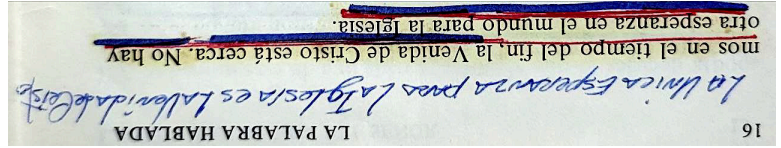 16 LA PALABRA HABLADA
La Unica Esperanza para La Iglesia es La Venida de Cristo
mos en el tiempo del fin, la Venida de Cristo está cerca. No hay
otra esperanza en el mundo para la Iglesia.